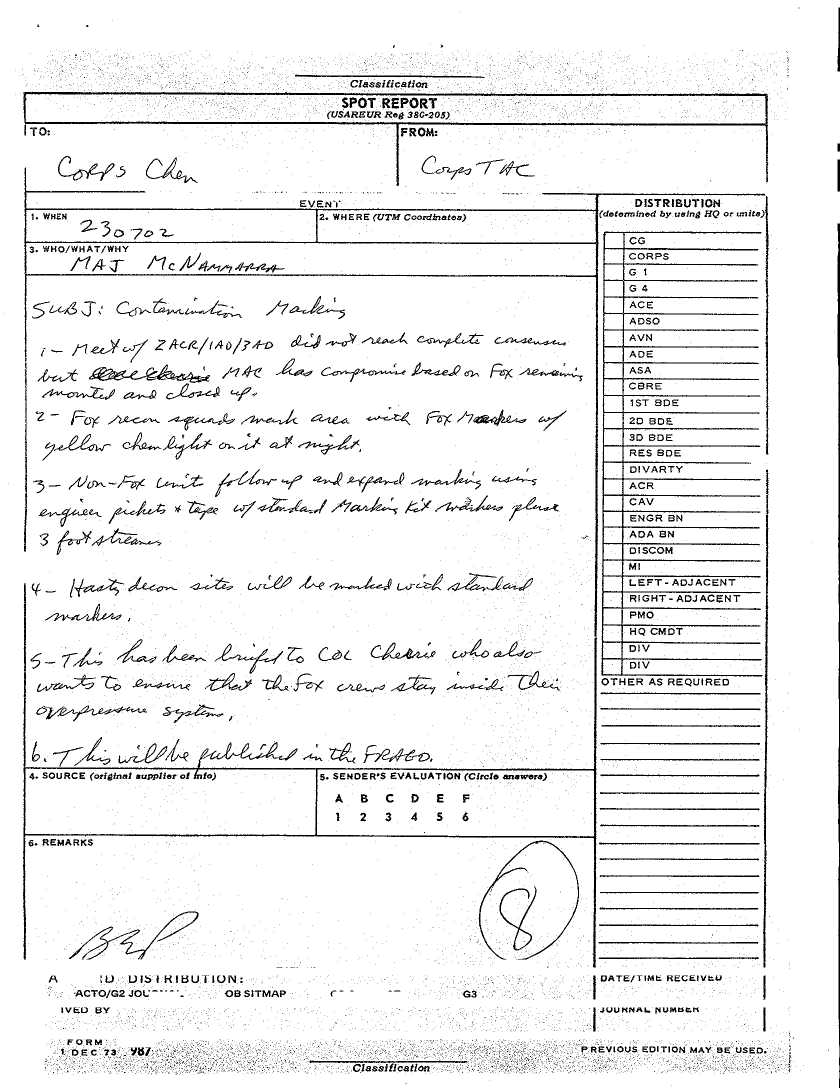 Classification
SPOT REPORT
(USAREUR Reg 380-205)
TO:
FROM:
Corps Chem
Corps TAC
EVENT
1. WHEN
230702
2. WHERE (UTM Coordinates)
3. WHO/WHAT/WHY
MAJ McNammarra
SUBJ: Contamination Marking
1 - Meet w/ 2ACR/1AD/3AD did not reach complete consensus
but MAC has compromise based on Fox remaining
mounted and closed up.
2 - Fox recon squads mark area with Fox Markers w/
yellow chemlight on it at night.
3 - Non-Fox units follow up and expand marking using
engineer pickets + tape w/ standard Marking Kit markers
3 foot streamers
4 - Hasty decon sites will be marked with standard
markers.
5 - This has been briefed to COL Cherrie who also
wants to ensure that the Fox crews stay inside their
overpressure systems.
6. This will be published in the FRAGO.
4. SOURCE (original supplier of info)
5. SENDER'S EVALUATION (Circle answers)
A B C D E F
1 2 3 4 5 6
6. REMARKS
8
DISTRIBUTION
(determined by using HQ or units)
CG
CORPS
G 1
G 4
ACE
ADSO
AVN
ADE
ASA
CBRE
1ST BDE
2D BDE
3D BDE
RES BDE
DIVARTY
ACR
CAV
ENGR BN
ADA BN
DISCOM
MI
LEFT-ADJACENT
RIGHT-ADJACENT
PMO
HQ CMDT
DIV
DIV
OTHER AS REQUIRED
DISTRIBUTION:
ACTO/G2 OB SITMAP G3
IVED BY
DATE/TIME RECEIVED
JOURNAL NUMBER
FORM
1 DEC 73 987
PREVIOUS EDITION MAY BE USED.
Classification